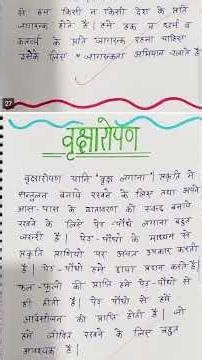 से हम किसी न किसी देश के प्रति
जागरूक होते हैं। हमें हक व धर्म व
कर्तव्यों के प्रति जागरूक रहना चाहिए
उसके लिए * जागरूकता अभियान चलाते हैं
27
वृक्षारोपण
वृक्षारोपण यानि "वृक्ष लगाना"। प्रकृति में
सन्तुलन बनाये रखने के लिए तथा अपने
आस-पास के वातावरण को स्वच्छ बनाये
रखने के लिये पेड़ पौधे लगाना बहुत
जरूरी है। पेड़-पौधों के माध्यम से
प्रकृति प्राणियों पर अनंत उपकार करती
है। पेड़-पौधे हमें छाया प्रदान करते हैं।
फल-फूलों की प्राप्ति हमें पेड़-पौधों से
ही होती है। पेड़ पौधों से हमें
ऑक्सीजन की प्राप्ति होती है। जो
हमें जीवित रखने के लिए बहुत
आवश्यक है।